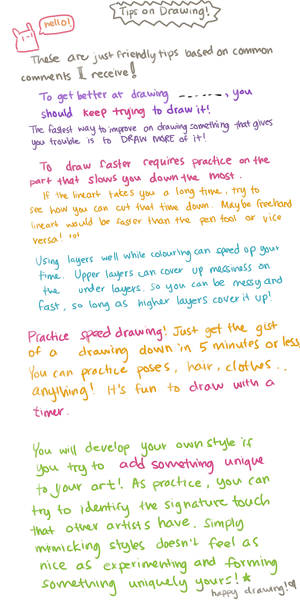 Tips on Drawing!
hello!
These are just friendly tips based on common
comments I receive!
To get better at drawing ------, you
should keep trying to draw it!
The fastest way to improve on drawing something that gives
you trouble is to DRAW MORE of it!
To draw faster requires practice on the
part that slows you down the most.
If the lineart takes you a long time, try to
see how you can cut that time down. Maybe freehand
lineart would be faster than the pen tool or vice
versa!
Using layers well while colouring can speed up your
time. Upper layers can cover up messiness on
the under layers. So you can be messy and
fast, so long as higher layers cover it up!
Practice speed drawing! Just get the gist
of a drawing down in 5 minutes or less.
You can practice poses, hair, clothes...
anything! It's fun to draw with a
timer.
You will develop your own style if
you try to add something unique
to your art! As practice, you can
try to identify the signature touch
that other artists have. Simply
mimicking styles doesn't feel as
nice as experimenting and forming
something uniquely yours!*
happy drawing!